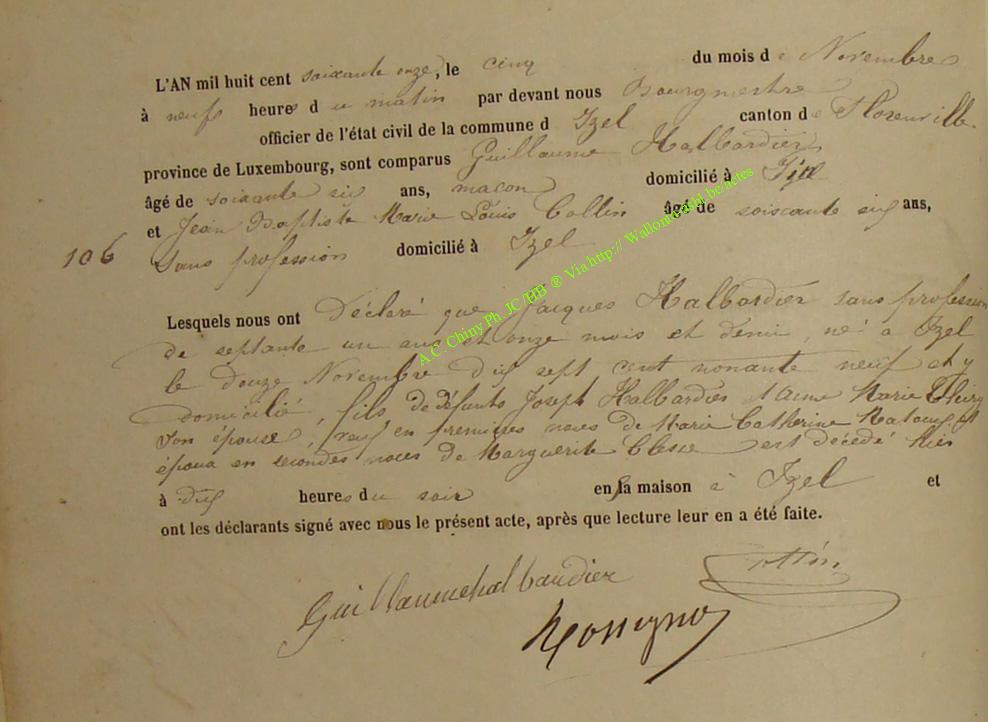 L'AN mil huit cent soixante onze, le cinq du mois de Novembre
à neufs heures du matin par devant nous Bourgmestre
officier de l'état civil de la commune d Izel canton de Florenville
province de Luxembourg, sont comparus Guillaume Halbardier
âgé de soixante six ans, macon domicilié à Izel
et Jean Baptiste Marie Louis Collin âgé de soixante six ans,
106 Sans profession domicilié à Izel
Lesquels nous ont Déclaré que Jacques Halbardier sans profession
de septante un ans et onze mois et demi, né à Izel
le douze Novembre dix sept cent nonante neuf et y
domicilié, fils de défunts Joseph Halbardier Marie
son épouse, veuf en premières noces de Marie Catherine et
époux en secondes noces de Marguerite est décédé hier
à dix heures du soir en sa maison à Izel et
ont les déclarants signé avec nous le présent acte, après que lecture leur en a été faite.
Guillaumehalbaudier Collin
Rossignol
A.C. Chiny Ph_JC/HB ® Via http:// Wallonica
.be/actes